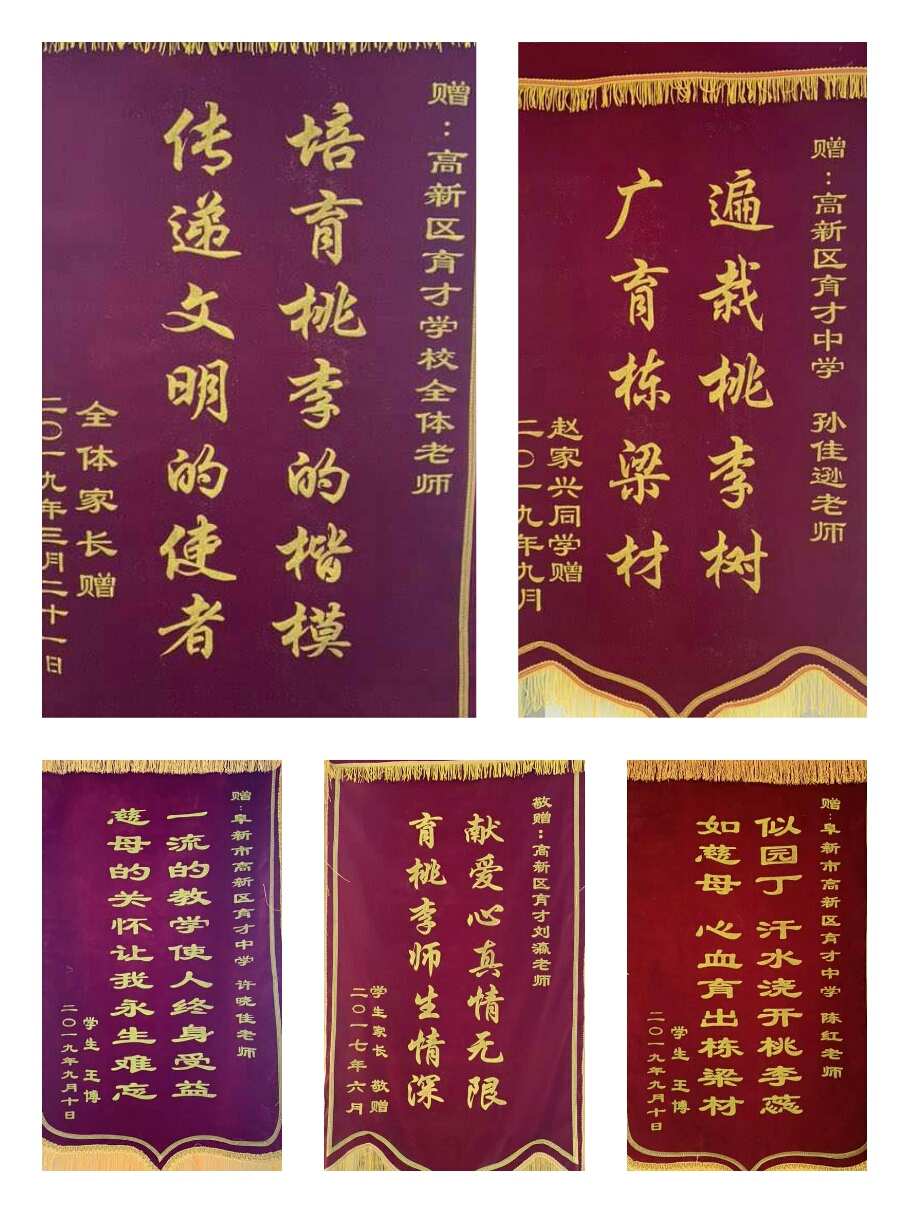 赠：高新区育才学校全体老师
培育桃李的楷模
传递文明的使者
全体家长赠
二〇一九年三月二十一日
赠：高新区育才中学 孙佳逊老师
遍栽桃李树
广育栋梁材
赵家兴同学赠
二〇一九年九月
赠：阜新市高新区育才中学 许晓佳老师
一流的教学使人终身受益
慈母的关怀让我永生难忘
学生 王博
二〇一九年九月十日
敬赠：高新区育才刘瀛老师
献爱心真情无限
育桃李师生情深
学生家长 敬赠
二〇一七年六月
赠：阜新市高新区育才中学 陈红老师
似园丁 汗水浇开桃李蕊
如慈母 心血育出栋梁材
学生 王博
二〇一九年九月十日